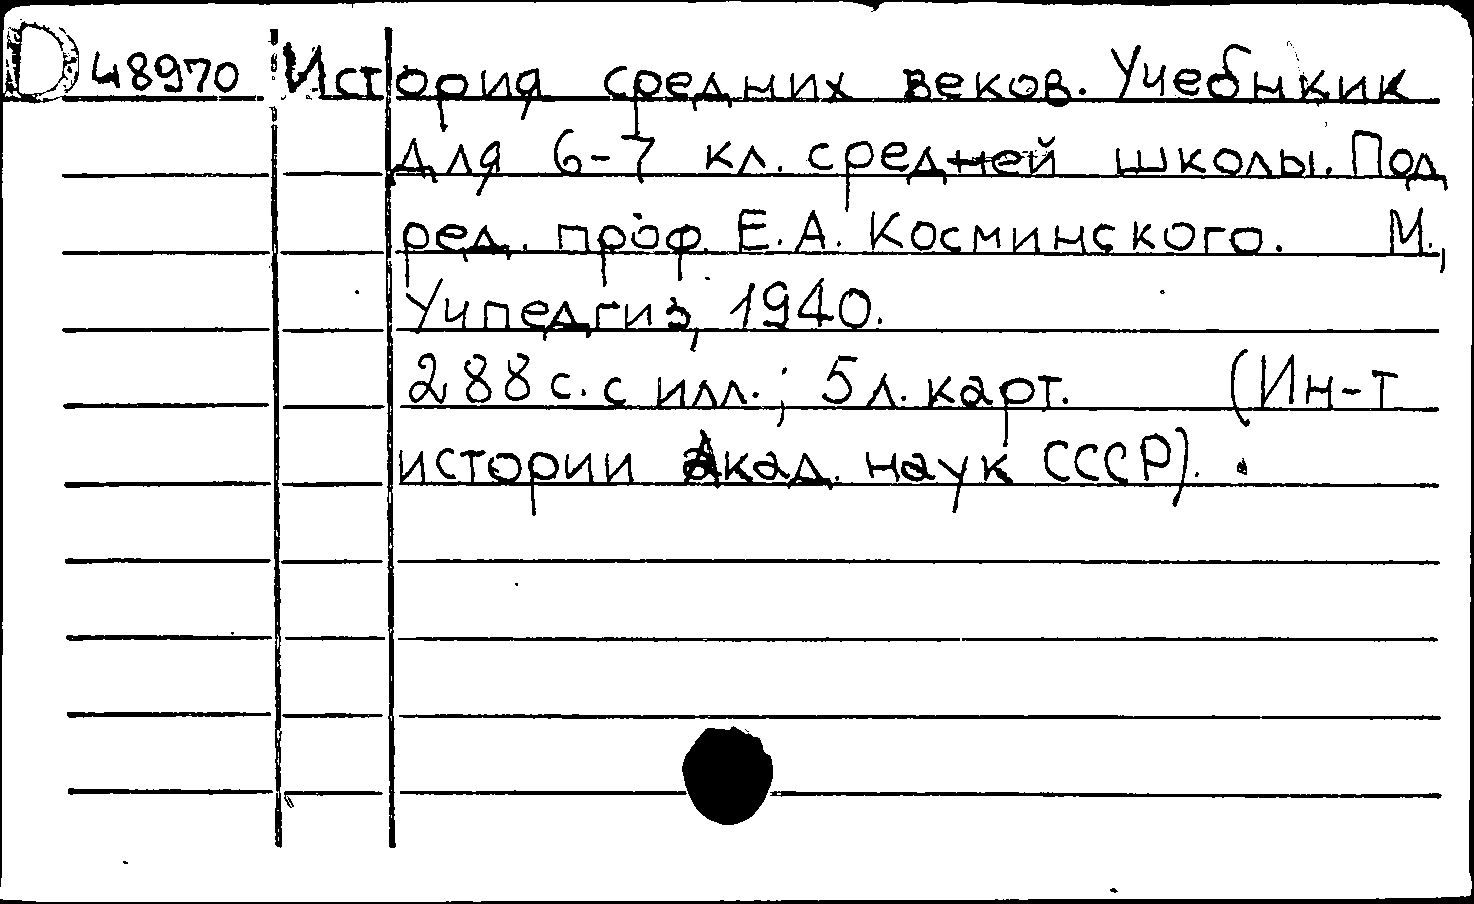 D 48970 История средних веков. Учебнкик
для 6-7 кл. средней школы. Под
ред. проф. Е.А. Косминского. М.,
Учпедгиз, 1940.
288 с. с илл.; 5 л. карт. (Ин-т
истории Акад. наук СССР).